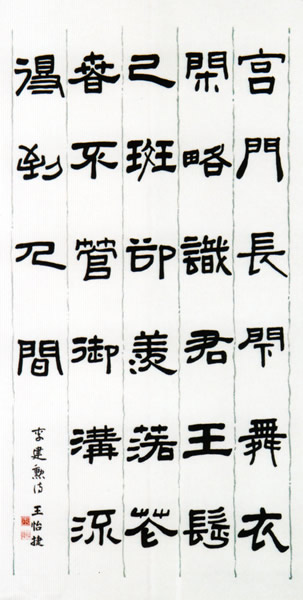 宮門長閇舞衣
閑略識君王鬢
已斑卻羨落花
春不管御溝流
得到人間
李建勳詩 王怡捷